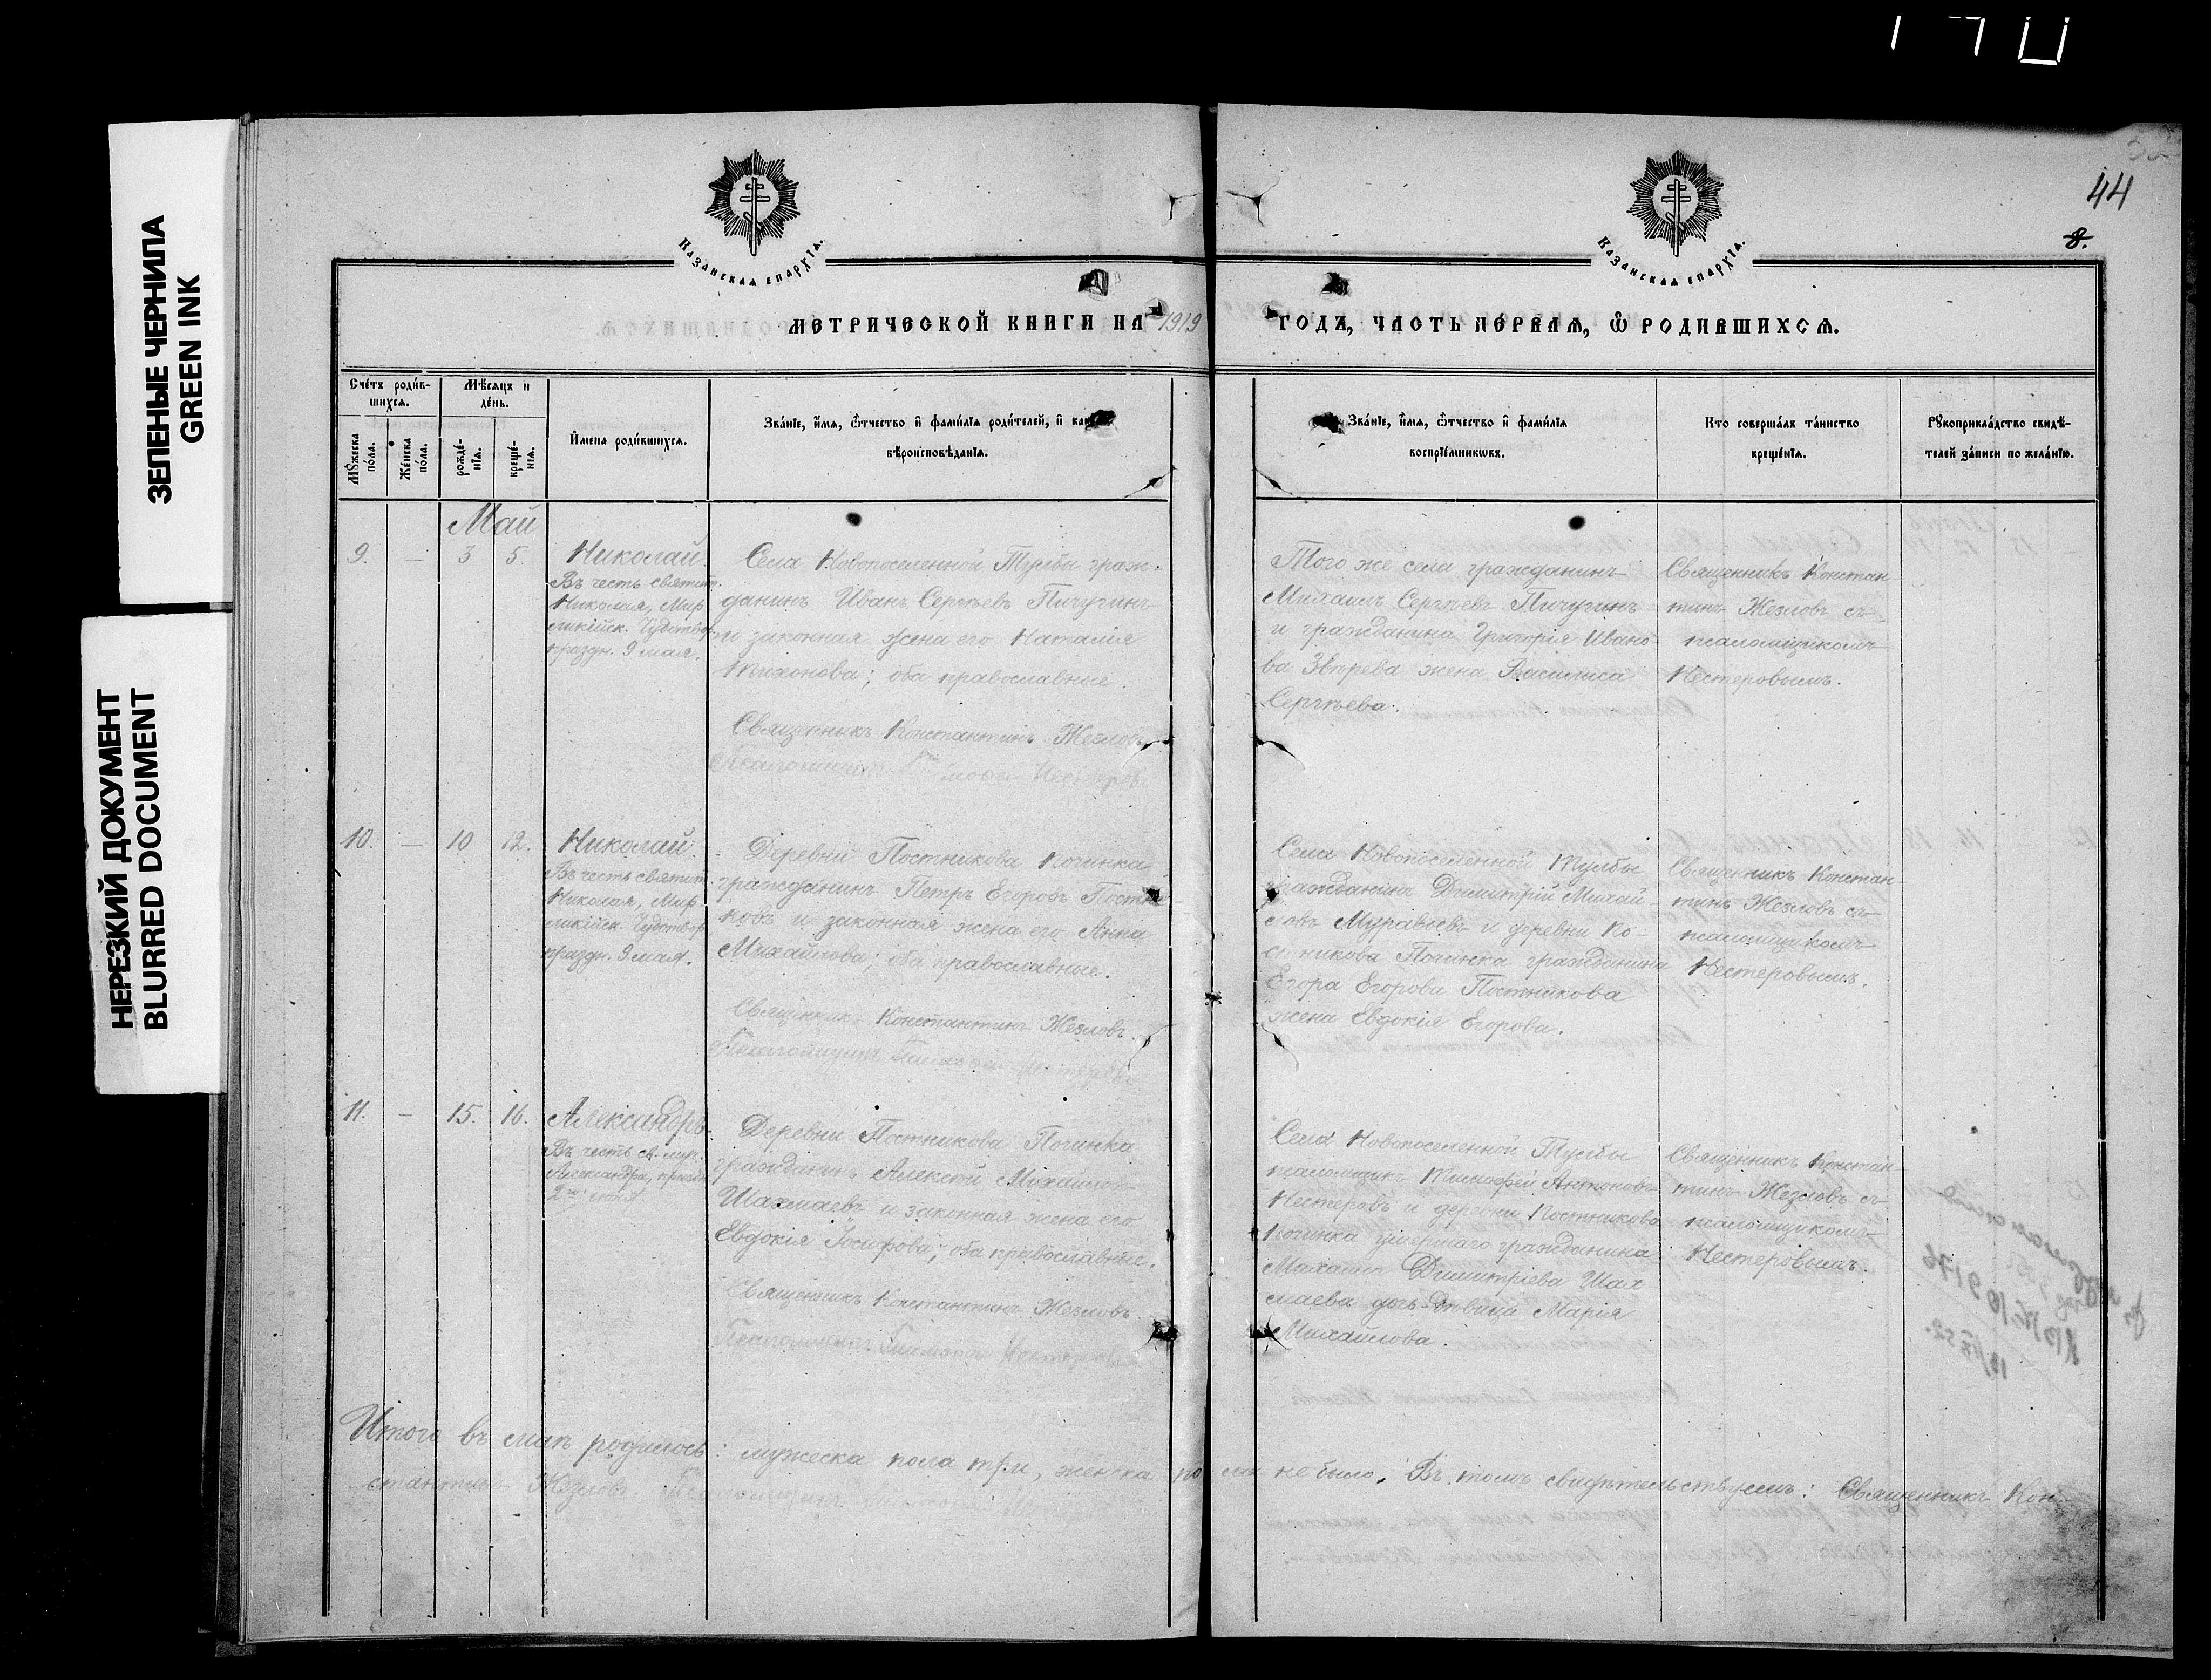 44
8.
ЗЕЛЕНЫЕ ЧЕРНИЛА
GREEN INK
НЕРЕЗКИЙ ДОКУМЕНТ
BLURRED DOCUMENT
Казанская епархїа.
Казанская епархїа.
Метрической книги на 1919
годъ, часть первая, ѿ родившихся.
Счетъ родив-
шихся.
Мѣсяцъ и
день.
Имена родившихся.
Званїе, имя, ѿчество и фамилїя родителей, и
вѣроисповѣданїя.
Мужеска
пола.
Женска
пола.
рожде-
нїя.
креще-
нїя.
Званїе, имя, ѿчество и фамилїя
воспрїемниковъ.
Кто совершалъ таинство
крещенїя.
Рукоприкладство свидѣ-
телей записи по желанїю.
Май
9. — 3 5. Николай.
Въ честь святит.
Николая, Мир
ликійск. Чудотвор.
праздн. 9 мая.
Села Новопоселенной Тумбы граж-
данинъ Иванъ Сергѣевъ Пичугинъ
и законная жена его Наталія
Тихонова; оба православные.
Священникъ Константинъ Жезловъ
Того же села гражданинъ
Михаилъ Сергѣевъ Пичугинъ
и гражданина Григорія Ивано-
ва Звѣрева жена Василиса
Сергѣева.
Священникъ Констан-
тинъ Жезловъ съ
псаломщикомъ
Нестеровымъ.
10. — 10 12. Николай.
Въ честь святит.
Николая, Мир
ликійск. Чудотвор.
праздн. 9 мая.
Деревни Постникова Починка
гражданинъ Петръ Егоровъ Постни-
ковъ и законная жена его Анна
Михайлова; оба православные.
Священникъ Константинъ Жезловъ.
Села Новопоселенной Тумбы
гражданинъ Димитрій Михай-
ловъ Муравьевъ и деревни По-
стникова Починка гражданина
Егора Егорова Постникова
жена Евдокія Егорова.
Священникъ Констан-
тинъ Жезловъ съ
псаломщикомъ
Нестеровымъ.
11. — 15. 16. Александръ.
Въ честь св. муч.
Александра, праздн.
2го іюня.
Деревни Постникова Починка
гражданинъ Алексѣй Михайловъ
Шахмаевъ и законная жена его
Евдокія Іосифова; оба православные.
Священникъ Константинъ Жезловъ.
Псаломщикъ Тимофей Нестеровъ
Села Новопоселенной Тумбы
псаломщикъ Тимофей Антоновъ
Нестеровъ и деревни Постникова
Починка умершаго гражданина
Михаила Димитріева Шах
маева дочь-дѣвица Марія
Михайлова.
Священникъ Констан-
тинъ Жезловъ съ
псаломщикомъ
Нестеровымъ.
Итого въ маѣ родилось: мужеска пола три, женска пола не было. Въ томъ свидѣтельствуемъ: Священникъ Кон-
стантинъ Жезловъ. Псаломщикъ Тимофей Нестеровъ